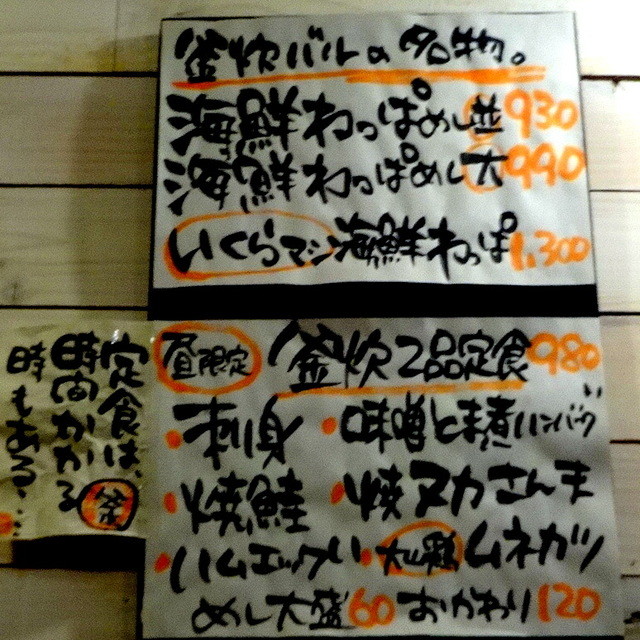 釜炊バルの名物。
海鮮わっぱめし並930
海鮮わっぱめし大990
いくらマシ海鮮わっぱ1,300
昼限定 釜炊2品定食980
・刺身 ・味噌とま煮ハンバーグ
・焼鮭 ・焼ヌカさんま
・ハムエッグい ・大山鶏ムネカツ
めし大盛60 おかわり120
定食は、釜
時間かかる
時もある…